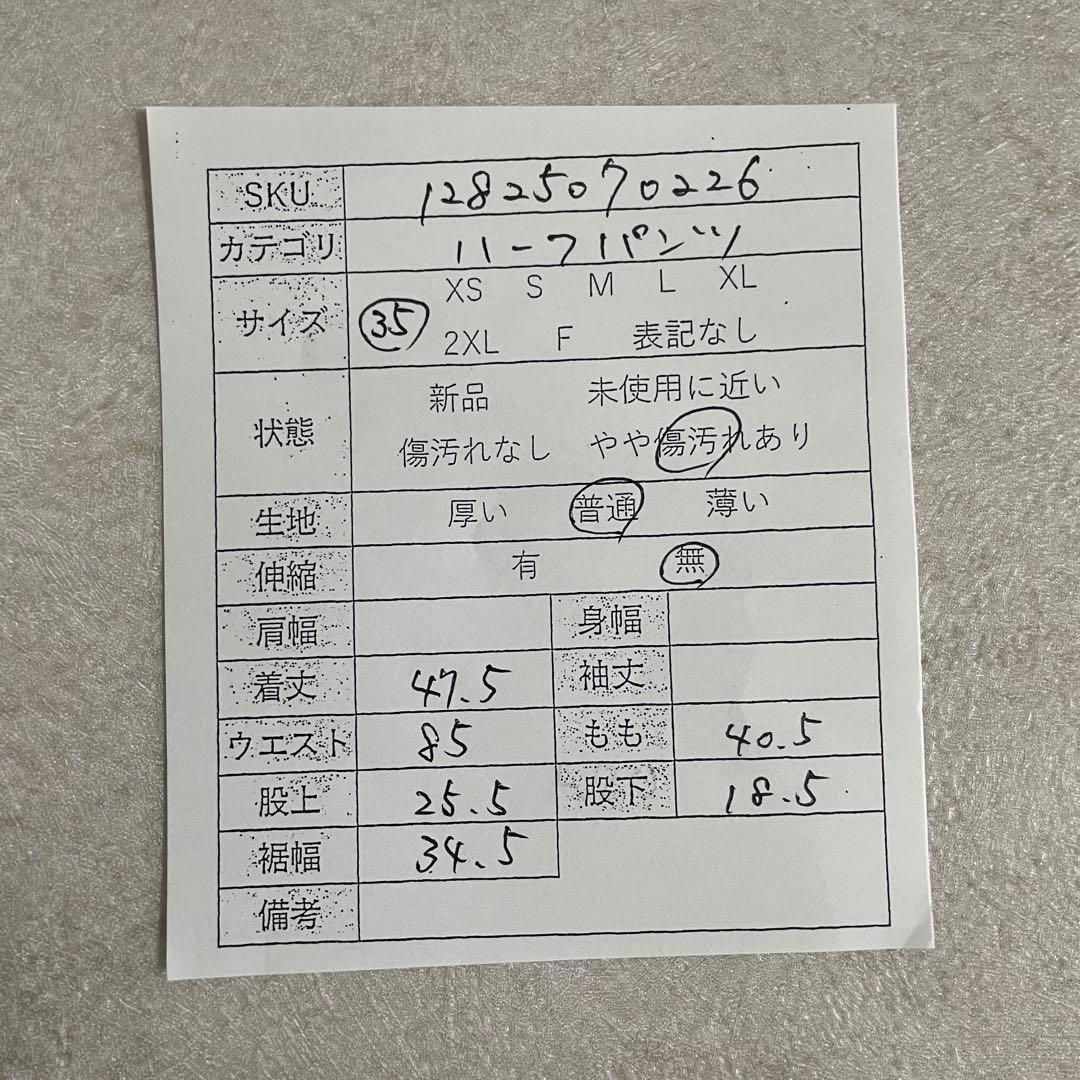 SKU 12825070226
カテゴリ ハーフパンツ
サイズ 35 XS S M L XL
2XL F 表記なし
状態 新品 未使用に近い
傷汚れなし やや傷汚れあり
生地 厚い 普通 薄い
伸縮 有 無
肩幅 身幅
着丈 47.5 袖丈
ウエスト 85 もも 40.5
股上 25.5 股下 18.5
裾幅 34.5
備考